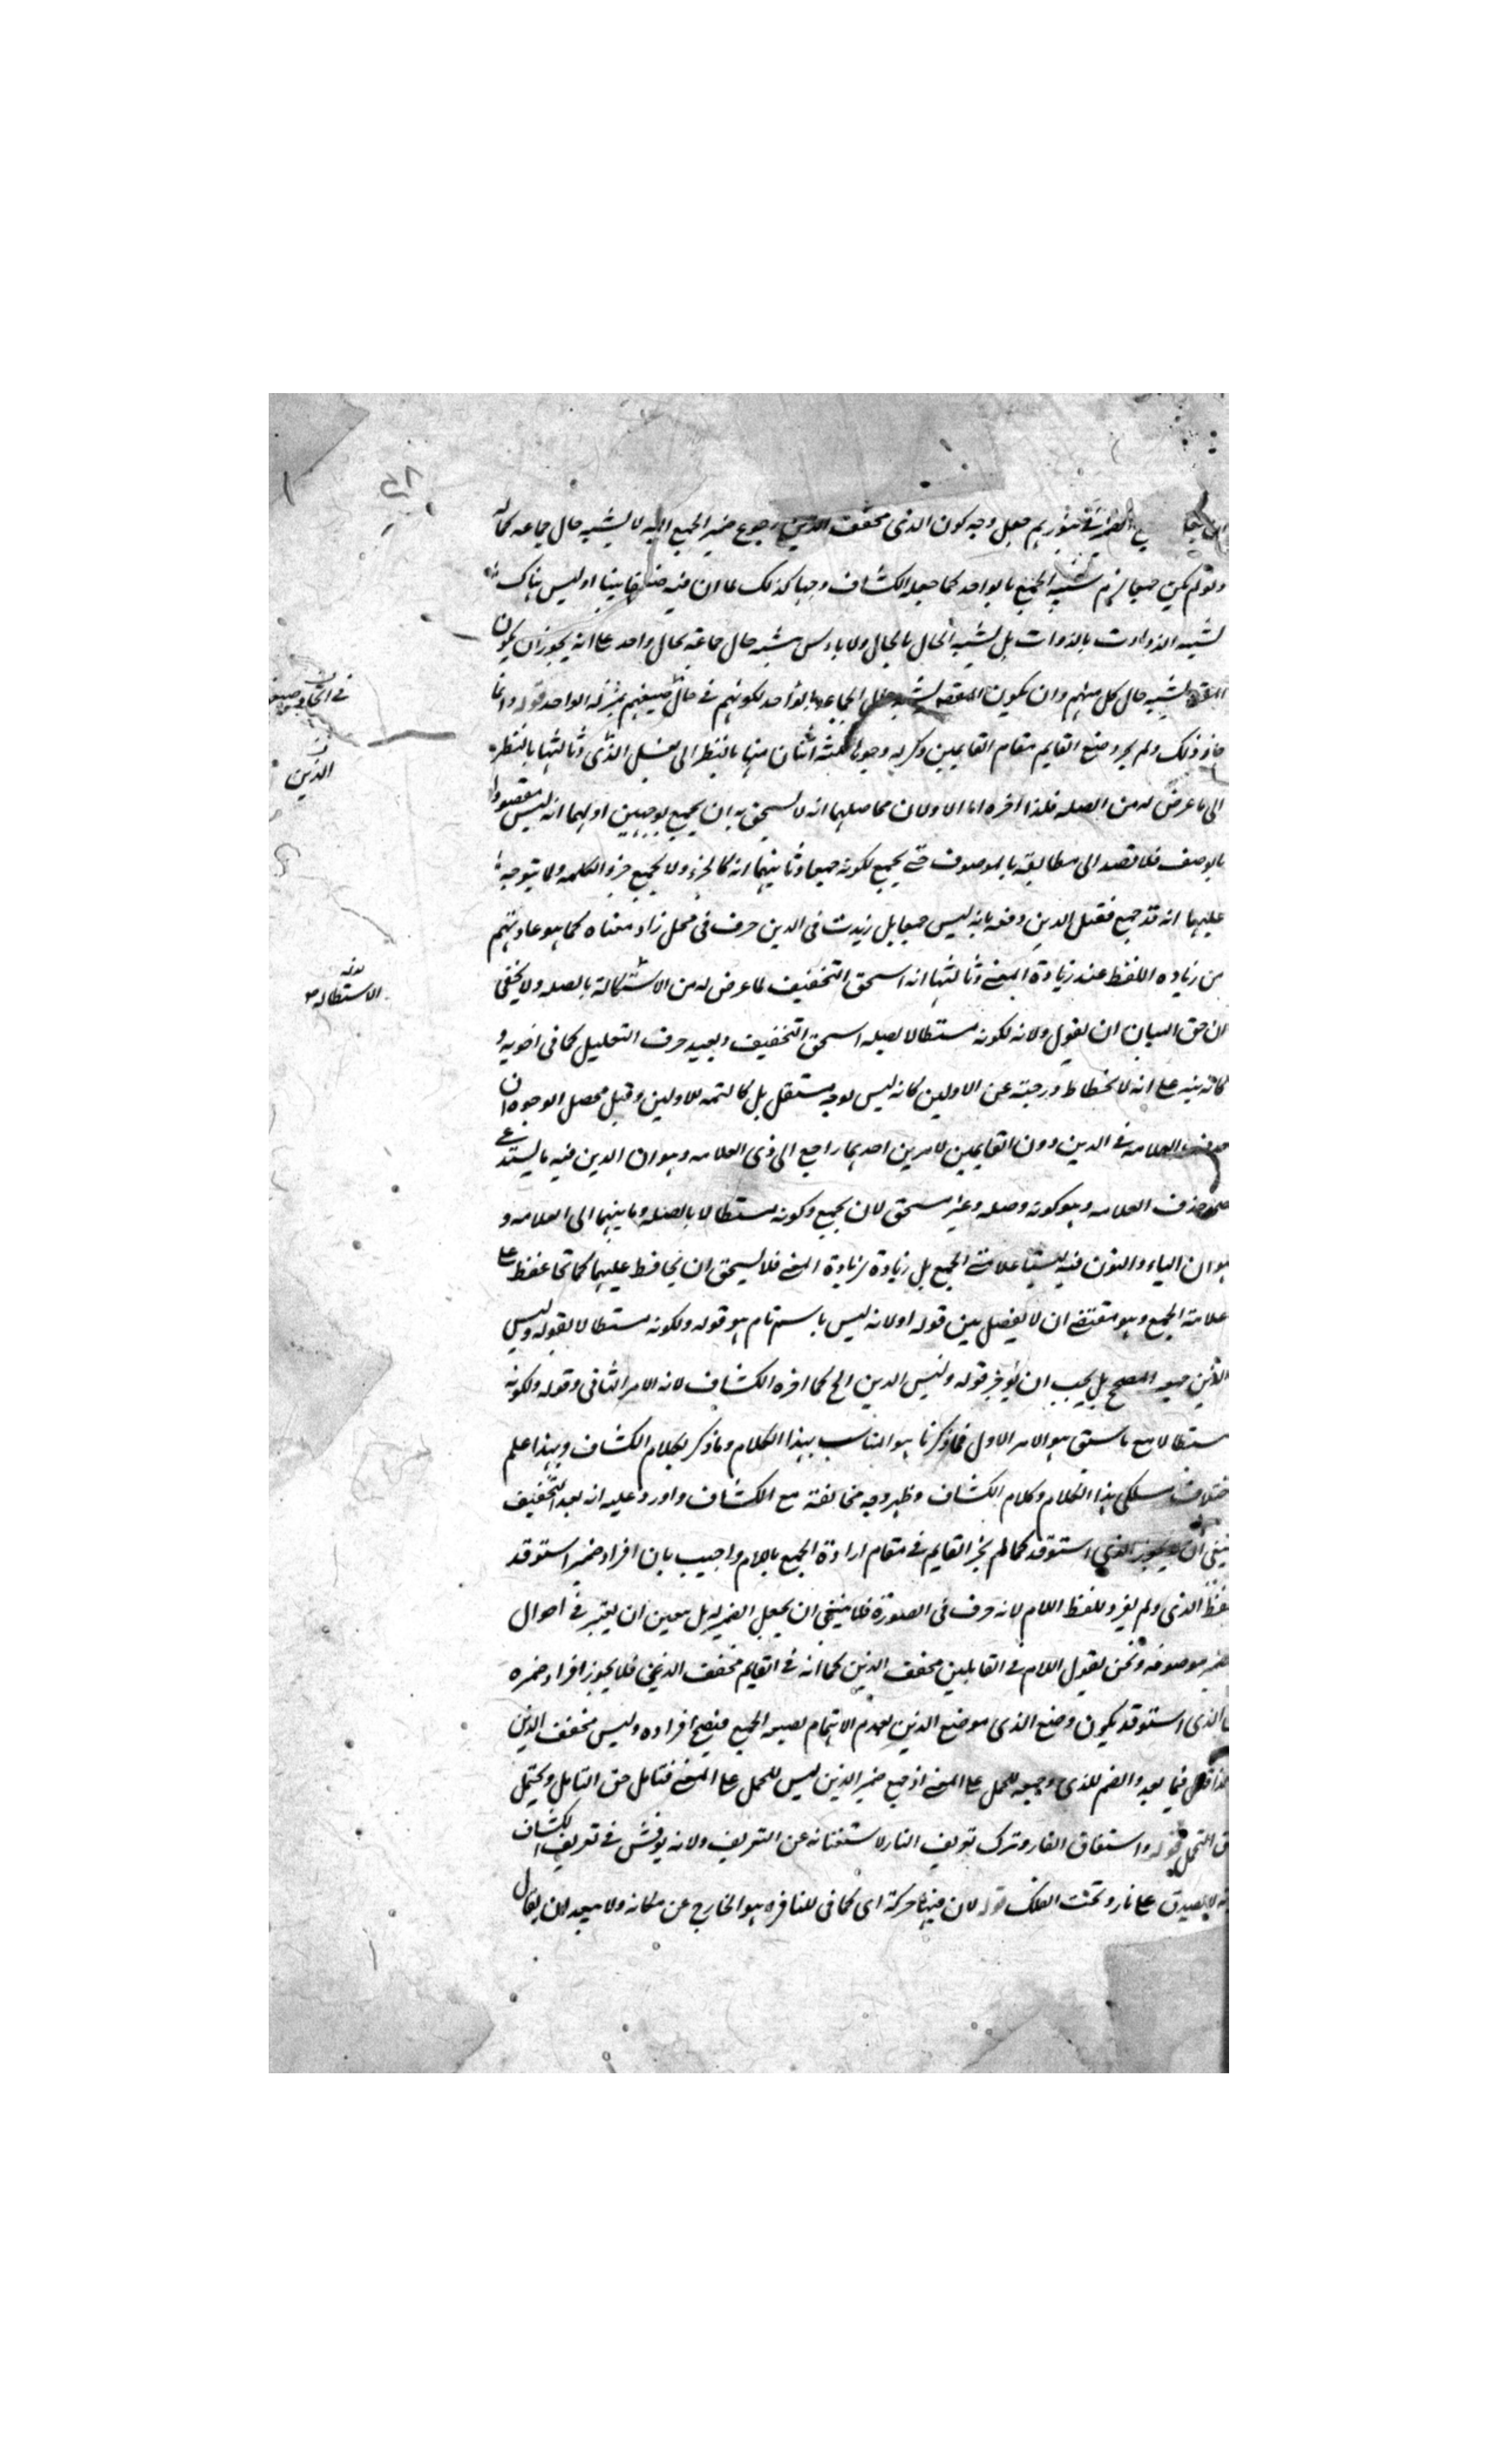 الضمير في بنورهم جعل وجه كون الذى مخفف الذين رجوع ضمير الجمع اليه لا تشبيه حال جماعه كما
ولو لم يكن جمعا لزم تشبيه الجمع بالواحد كما جعله الكشاف وجها كذلك لما ان فيه بينا اذ ليس هناك
تشبيه الذوات بالذوات بل تشبيه الحال بالحال ولا باس تشبه حال جماعة بحال واحد على انه يجوز ان يكون
تشبيه حال كل منهم وان يكون الجماعه بالواحد لكونهم في حال بمنزله الواحد قوله وانما
جاز ذلك ولم يجز وضع القايم مقام القايمين ذكر له وجوها ثلثه اثنان منها بالنظر الى نفس الذى وثالثها بالنظر
الى ما عرض له من الصله فلذا اخره اما الاولان فحاصلهما انه لا يستحق به ان يجمع بوجهين اولهما انه ليس مقصودا
بالوصف فلا قصد الى مطابقته بالموصوف حتى يجمع لكونه جمعا وثانيهما انه كالجزء ولا يجمع جزو الكلمه ولما يتوجه
عليهما انه قد جمع فقيل الذين دفعه بانه ليس جمعا بل زيدت في الذين حرف في محل زاد معناه كما هو عادتهم
من زياده اللفظ عند زيادة المعنى وثالثها انه استحق التخفيف لما عرض له من الاستطالة بالصله ولا يخفى
ان حق البيان ان يقول ولانه لكونه مستطالا بصلته استحق التخفيف ويعيد حرف التعليل كما في اخويه و
كانه نبه على انه لانحطاط درجته عن الاولين كانه ليس بوجه مستقل بل كالتتمه للاولين وقيل محصل الوجوه ان
حذف العلامه في الذين دون القايمين لامرين احدهما راجع الى ذى العلامه وهو ان الذين فيه ما يستدعى
حذف العلامه وهو كونه وصله وغير مستحق لان يجمع وكونه مستطالا بالصله وثانيهما الى العلامه و
هو ان الياء والنون فيه ليستا علامتى الجمع بل زيادة لزيادة المعنى فلا يستحق ان يحافظ عليهما كما تحافظ على
علامة الجمع وهو مقتضى ان لا يفصل بين قوله اولانه ليس باسم تام هو قوله ولكونه مستطالا بقوله وليس
الذين جمعه المصحح بل يجب ان يؤخر قوله وليس الذين الخ كما اخره الكشاف لانه الامر الثاني وقوله ولكونه
مستطالا مع ما سبق هو الامر الاول فما ذكرنا هو المناسب بهذا الكلام وما ذكر بكلام الكشاف وبهذا علم
اختلاف مسلكى هذا الكلام وكلام الكشاف وظهر وجه مخالفته مع الكشاف واورد عليه انه بعد التخفيف
ينبغى ان لا يجوز الذى استوقد كما لم يجز القايم في مقام ارادة الجمع باللام واجيب بان افراد ضمير استوقد
لفظ الذى ولم يفرد للفظ اللام لانه حرف في الصورة فلا ينبغى ان يجعل الضمير له بل تعين ان يعتبر في احوال
ضمير موصوفه ونحن نقول اللام في القايمين مخفف الذين كما انه في القايم مخفف الذى فلا يجوز افراد ضميره
الذى استوقد يكون وضع الذى موضع الذين لعدم الاهتمام بصيغه الجمع فيصح افراده وليس مخفف الذين
فيما بعد والضم للذى وجمعه للحمل على المعنى اذ جمع ضمير الذين ليس للحمل على المعنى فتامل حق التامل ويحتمل
التحمل قوله واستقاق النار وترك تعريف النار لاستغنائه عن التعريف ولانه يوقش في تعريف الكشاف
انه لا يصدق على نار وتحت الفلك قوله لان فيها حركة اى كما في للنافره هو الخارج عن مكانه ولا يبعد ان يقال
الذين
الاستطاله